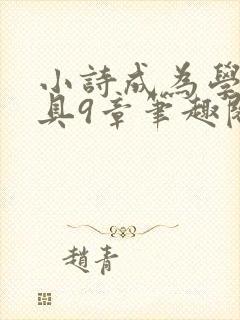 小詩成為學
具9章筆趣閱
趙青